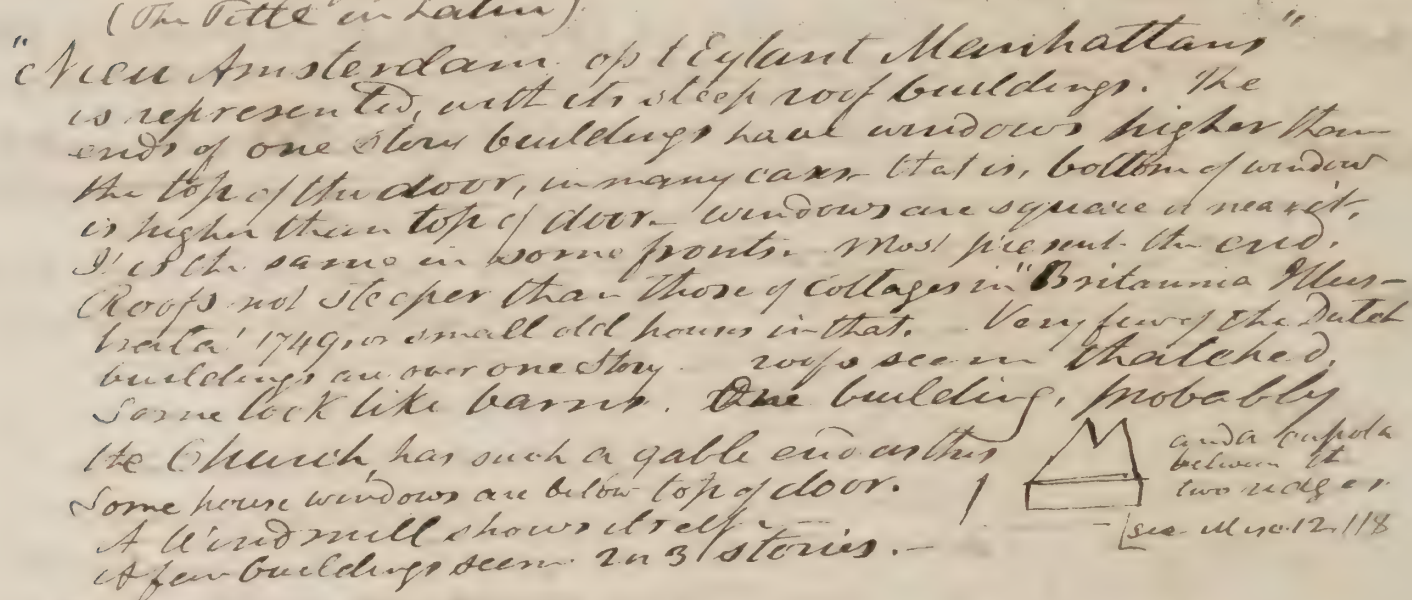 (The Title in Latin)
"Nieu Amsterdam op t Eylant Manhattans"
is represented, with its steep roof buildings. The
ends of one story buildings have windows higher than
the top of the door, in many cases that is, bottom of window
is higher than top of door - windows are square or near it.
It is the same in some fronts. Most present the end.
Roofs not steeper than those of cottages in "Britannia Illus-
trata" 1749, or small old houses in that. Very few of the Dutch
buildings are over one story roofs seem thatched.
Some look like barns. One building, probably
the Church, has such a gable end as this
and a cupola
between the
two ridges
Some house windows are below top of door.
[see Misc. 12/118
A Windmill shows itself -
A few buildings seem 2 or 3 stories. -